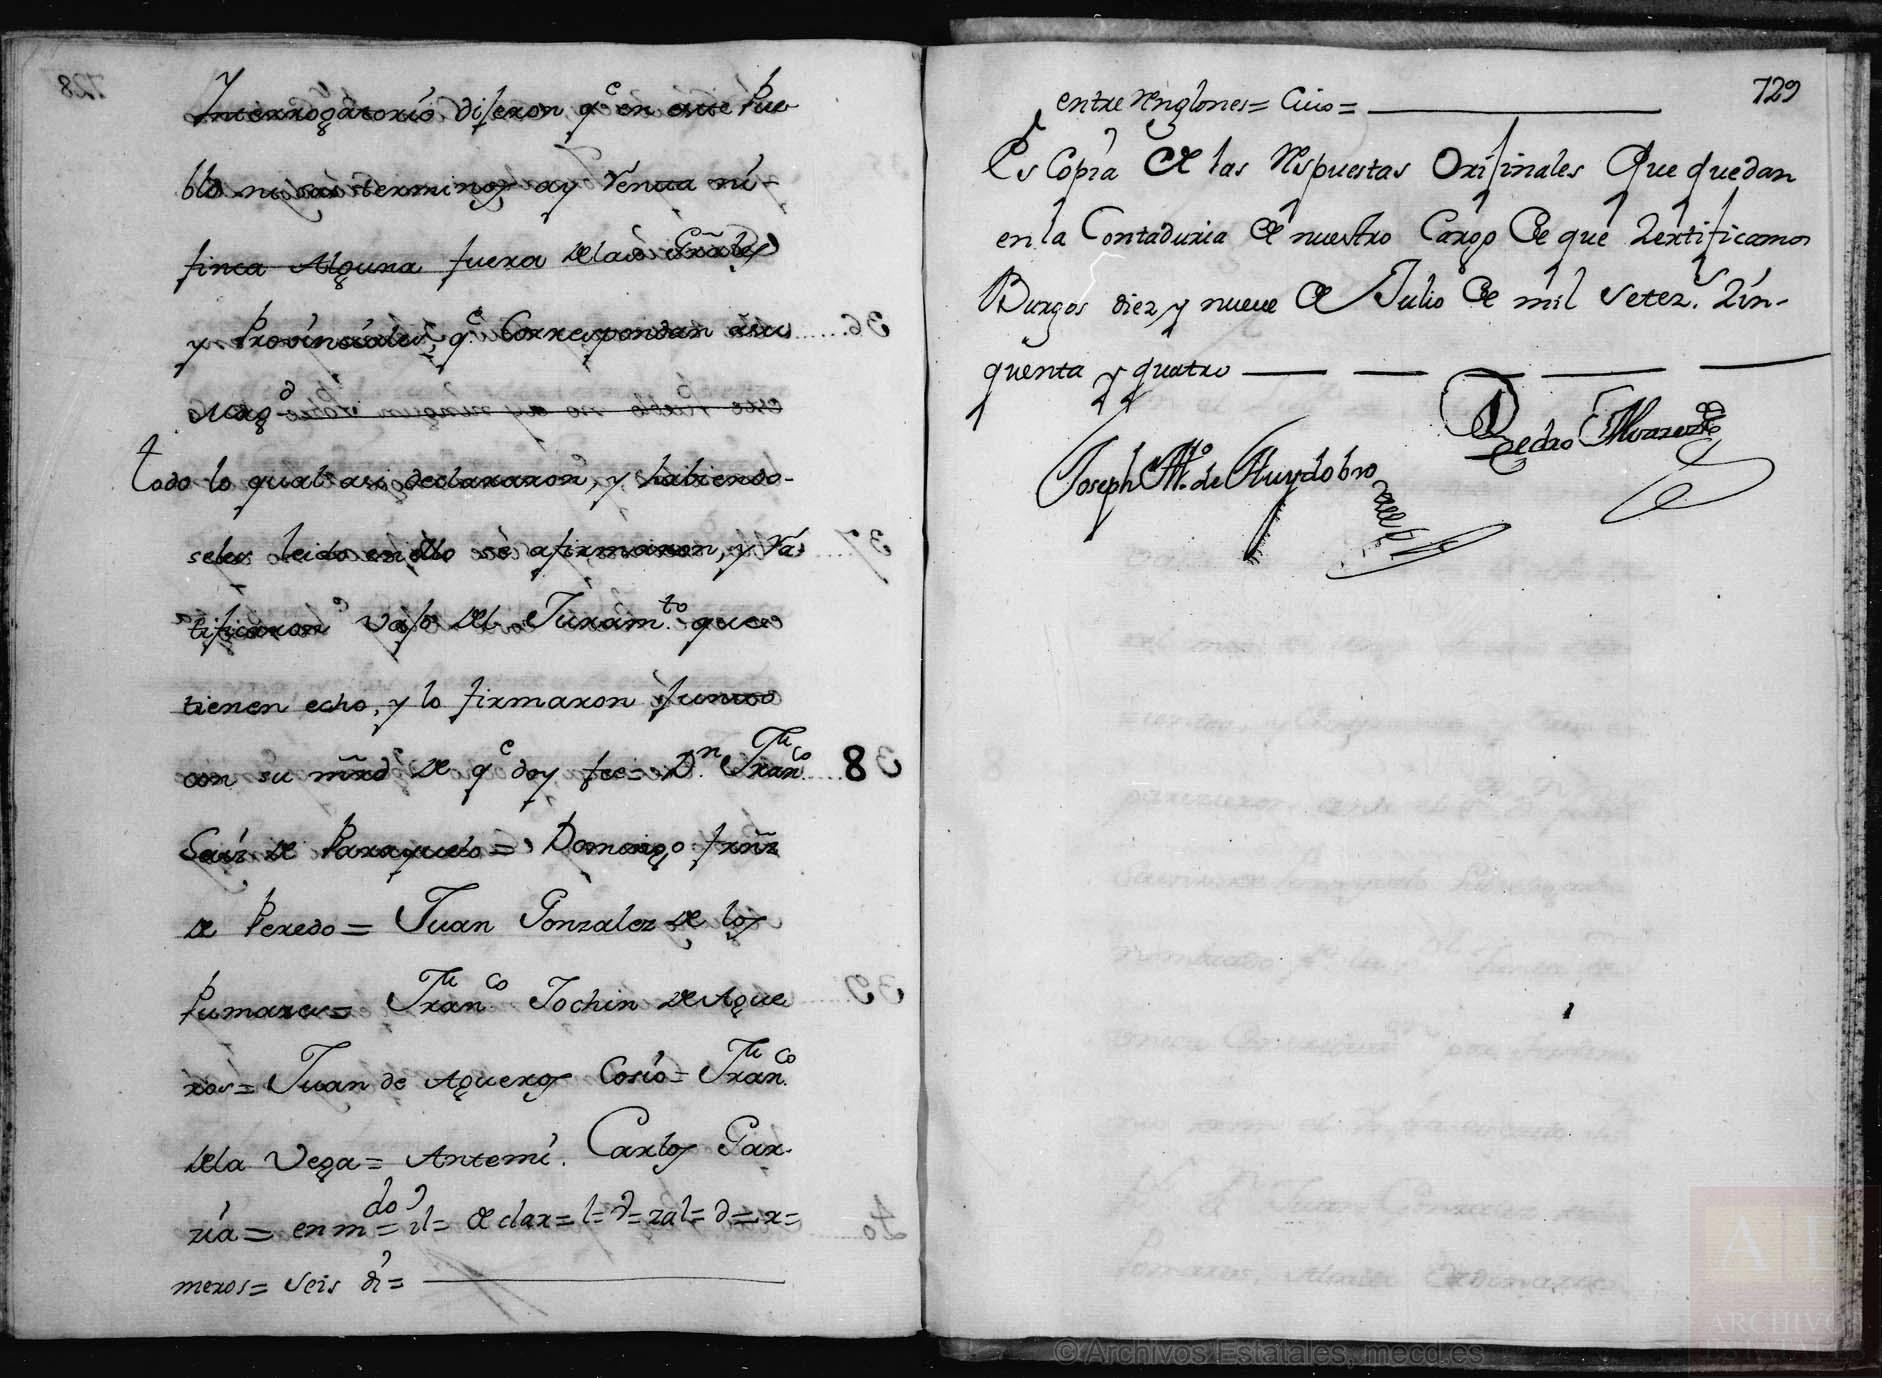 Interrogatorio dijeron q.e en este Pue
blo ni sus terminos ay Renta ni
finca Alguna fuera delas Grāles
y Provinciales, q.e Correspondan a su
Mag.d
todo lo qual asi declararon, y habiendo-
seles leido en ello se afirmaron, y Ra-
tificaron vajo del Juram.to que
tienen echo, y lo firmaron juntos
con su mrd de q.e doy fee= D.n Fran.co
Saiz de Paraquelo= Domingo frnz
de Peredo= Juan Gonzalez de los
Pumares= Fran.co Jochin de Ague
ros= Juan de Agueros Cosio= Fran.co
dela Vega= Antemi. Carlos Gar-
zia= enm.do = il= de clar= l= d= zal= d= r=
meros= seis di=
729
entre renglones= Cuio=
Es Copia de las Respuestas Orijinales Que quedan
en la Contaduria de nuestro Cargo De que Zertificamos
Burgos diez y nueve de Julio de mil Setez.s Zin-
quenta y quatro
Pedro Alvarez
Joseph M. de Huydobro
728
36
37
38
39
40
AE
ARCHIVOS
ESTATALES
© Archivos Estatales, mecd.es